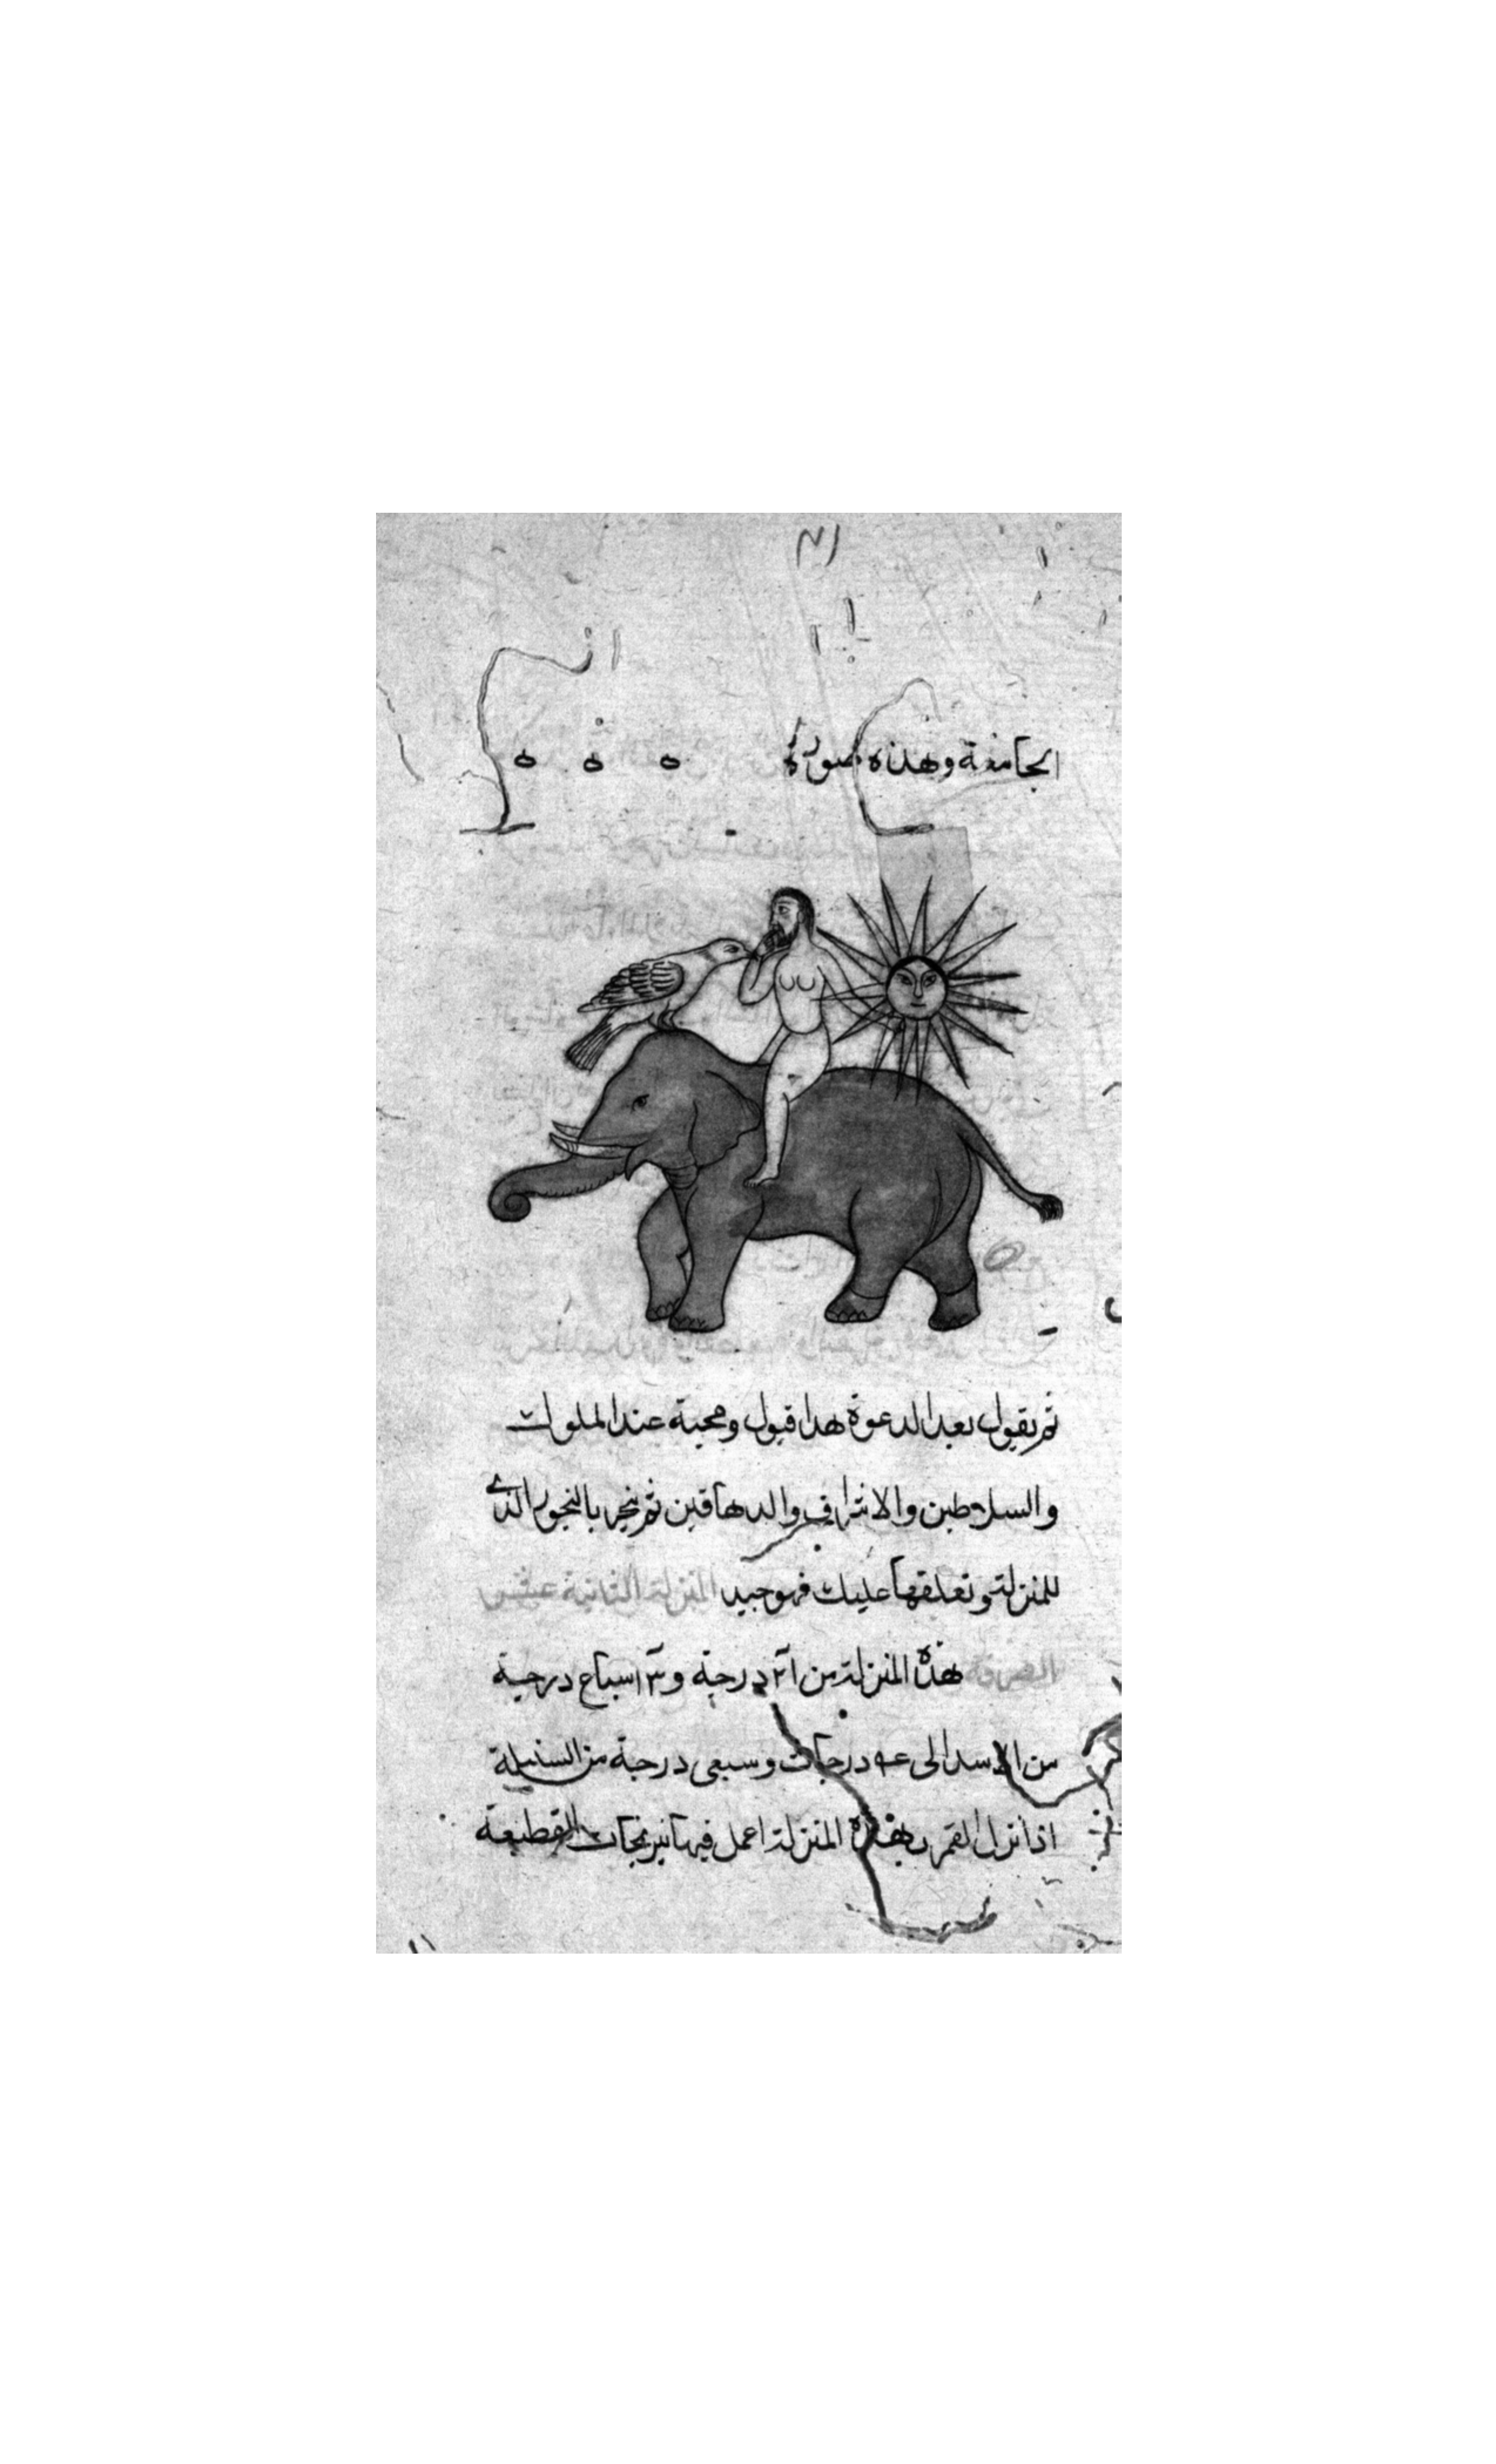 الجامعة وهذه صورة ه ه ه
ثم يقول بعد الدعوة هذا قبول ومحبة عند الملوك
والسلاطين والاشراف والدهاقين ثم يبخر بالبخور الذي
للمنزلة وتعلقها عليك فهو جيد المنزلة الثانية عشر
الصرفة هذه المنزلة من ٢١ درجة و٣ اسباع درجة
من الاسد الى درجات وسبعى درجة من السنبلة
اذا نزل القمر بهذه المنزلة اعمل فيها نيرنجات القطيعة